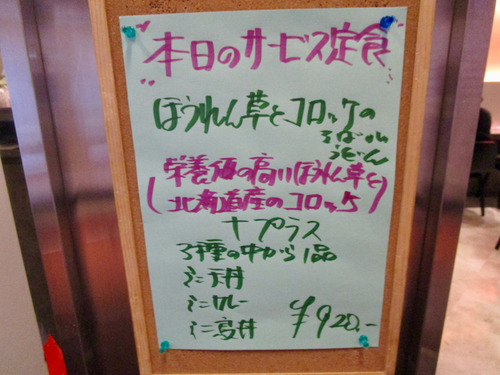 "本日のサービス定食"
ほうれん草とコロッケの
そばorうどん
(栄養価の高いほうれん草と
北海道産のコロッケ)
+プラス
3種の中から1品
ミニ天丼
ミニカレー
ミニ親子丼
¥920.-